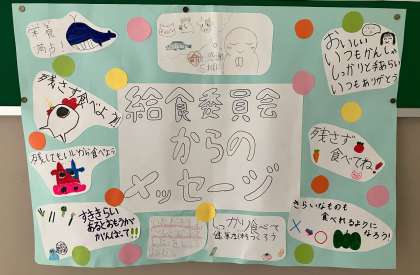 栄養
満点！
感謝
おいしい
いつもかんしゃ
しっかり手あらい
いつもありがとう
残さず食べよう
給食委員会
からの
メッセージ
残さず
食べてね！
すききらい
あるとおもうが
がんばって!!
しっかり食べて
健康な体をつくろう
きらいなものも
食べれるように
なろう！